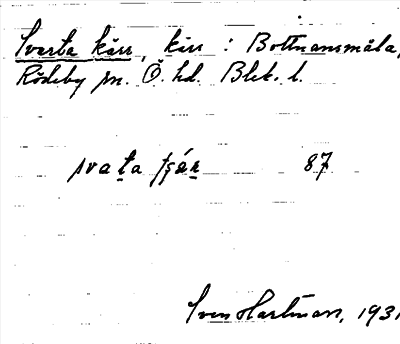 Svarta kärr, kärr : Bottnansmåla,
Rödeby sn. Ö. hd. Blek. l.
svata ţşär 87
Sven Hartman, 1931